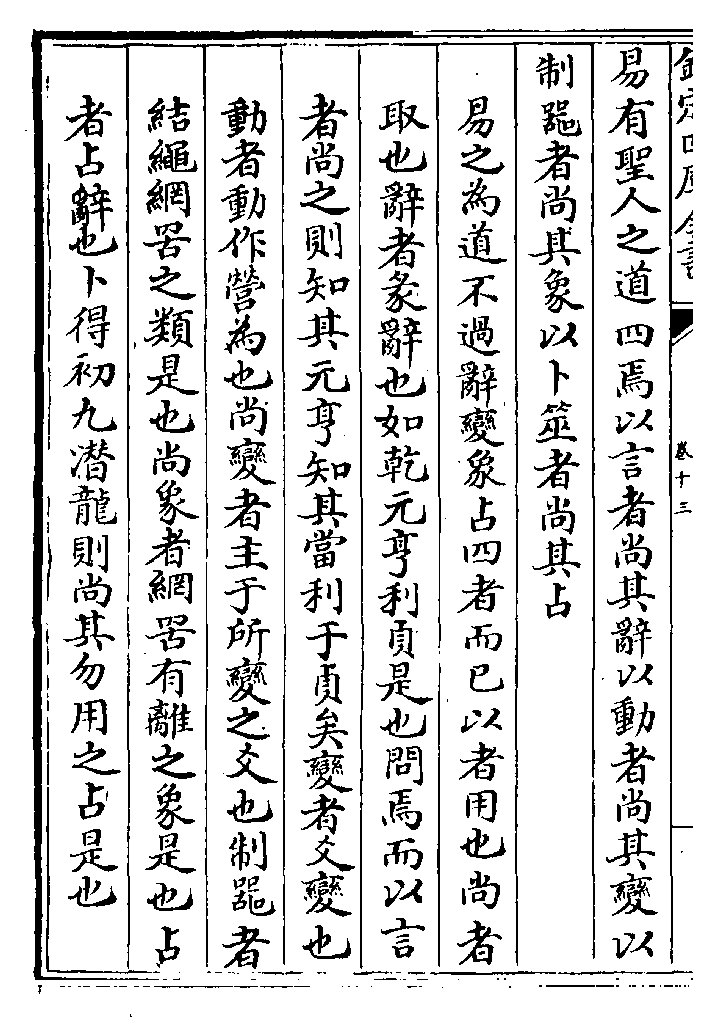 欽定四庫全書
卷十三
易有聖人之道四焉以言者尚其辭以動者尚其變以
制器者尚其象以卜筮者尚其占
易之為道不過辭變象占四者而已以者用也尚者
取也辭者彖辭也如乾元亨利貞是也問焉而以言
者尚之則知其元亨知其當利于貞矣變者爻變也
動者動作營為也尚變者主于所變之爻也制器者
結繩網罟之類是也尚象者網罟有離之象是也占
者占辭也卜得初九潛龍則尚其勿用之占是也